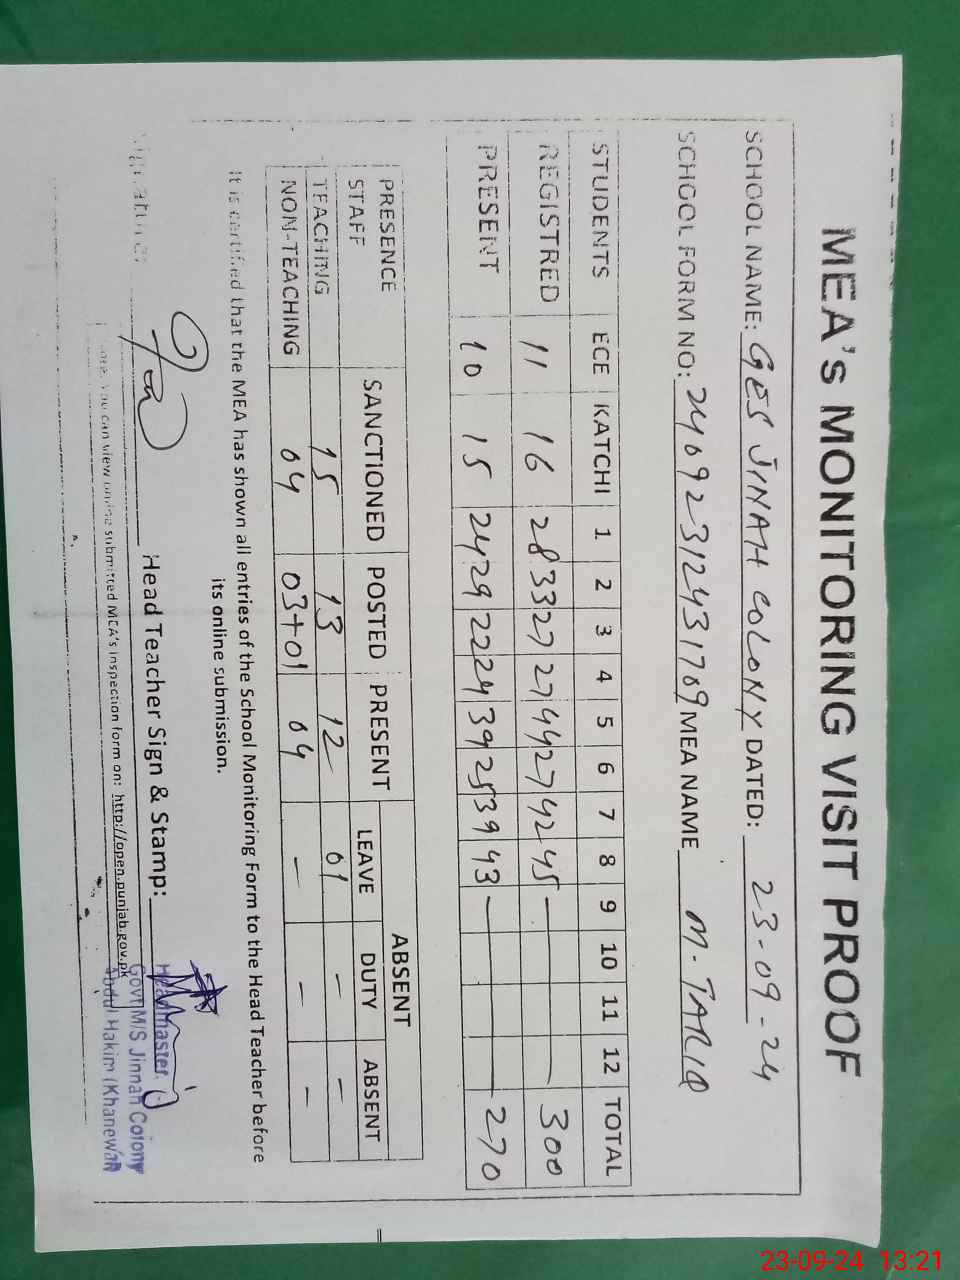 MEA'S MONITORING VISIT PROOF
SCHOOL NAME: GES JINAH COLONY DATED: 23-09-24
SCHOOL FORM NO: 24092312431709 MEA NAME M. TARIQ
STUDENTS ECE KATCHI 1 2 3 4 5 6 7 8 9 10 11 12 TOTAL
REGISTRED 11 16 28 33 27 27 44 27 42 45 — 300
PRESENT 10 15 24 29 22 24 39 25 39 43 — 270
PRESENCE STAFF SANCTIONED POSTED PRESENT ABSENT
LEAVE DUTY ABSENT
TEACHING 15 13 12 01 - -
NON-TEACHING 04 03+01 04 - - -
It is certified that the MEA has shown all entries of the School Monitoring Form to the Head Teacher before
its online submission.
Signature: Head Teacher Sign & Stamp:
Headmaster
Govt M/S Jinnah Colony
Abdul Hakim (Khanewal)
Note: You can view online submitted MEA's Inspection form on: http://open.punjab.gov.pk
23-09-24 13:21